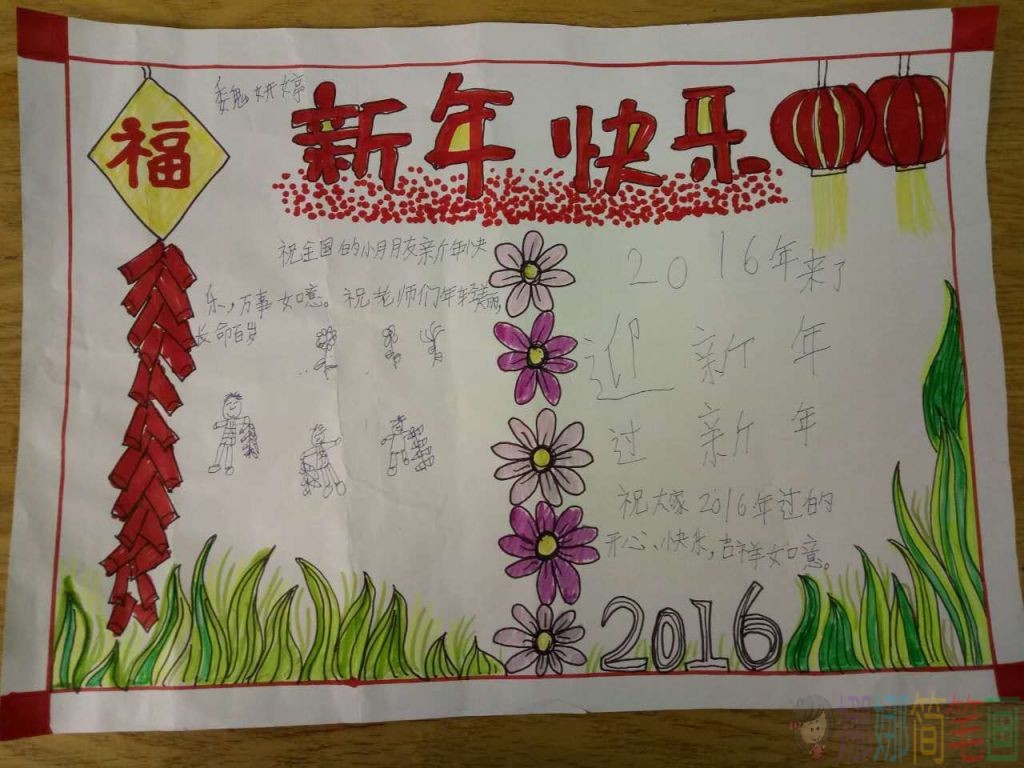 魏妍婷
新年快乐
福
祝全国的小月月友亲斤年快
乐,万事如意。祝老师们年轻美丽,
长命百岁
2016年来了
迎新年
过新年
祝大家2016年过的
开心、快乐,吉祥如意。
2016
娜娜简笔画